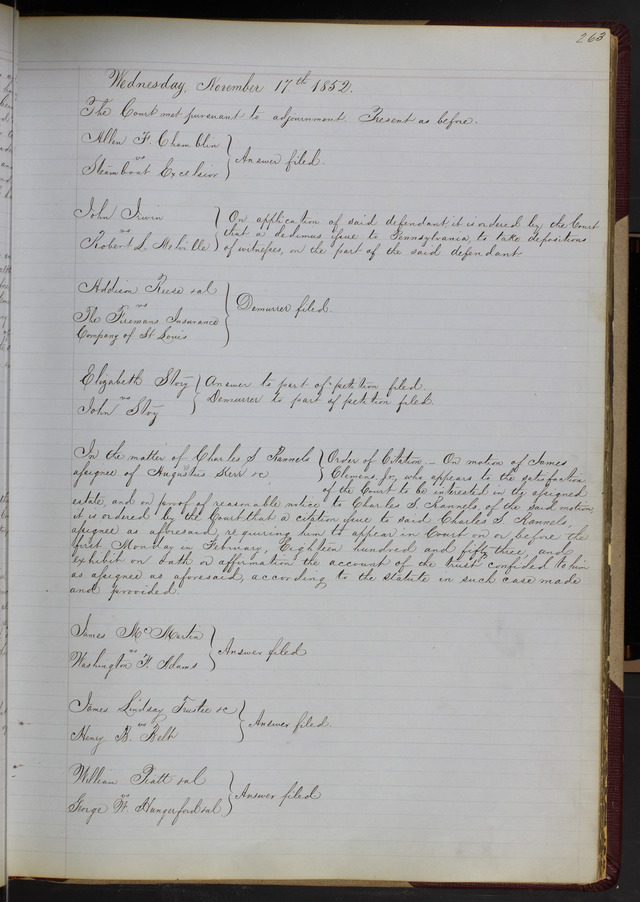 263
Wednesday, November 17th 1852.
The Court met pursuant to adjournment. Present as before.
Allen F. Chamblin
vs
Steamboat Excelsior
Answer filed.
John Irwin
vs
Robert L. Melville
On application of said defendant, it is ordered by the Court
that a dedimus issue to Pennsylvania, to take depositions
of witnesses, on the part of the said defendant.
Addison Reese et al
vs
The Firemans Insurance
Company of St Louis
Demurrer filed.
Elizabeth Story
vs
John Story
Answer to part of petition filed.
Demurrer to part of petition filed.
In the matter of Charles S. Rannels
assignee of Augustus Kerr &c
Order of Citation. – On motion of James
Clemens, Jr, who appears to the satisfaction
of the Court to be interested in the assigned
estate, and on proof of reasonable notice to Charles S. Rannels, of the said motion
it is ordered by the Court that a citation issue to said Charles S. Rannels,
assignee as aforesaid, requiring him to appear in Court on or before the
first Monday in February, Eighteen hundred and fifty three, and
exhibit on oath or affirmation the account of the trust confided to him
as assignee as aforesaid, according to the statute in such case made
and provided.
James McMartin
vs
Washington F. Adams
Answer filed
James Lindsay Trustee &c
vs
Henry B. Belt
Answer filed.
William Piatt et al
vs
George W. Hungerford et al
Answer filed